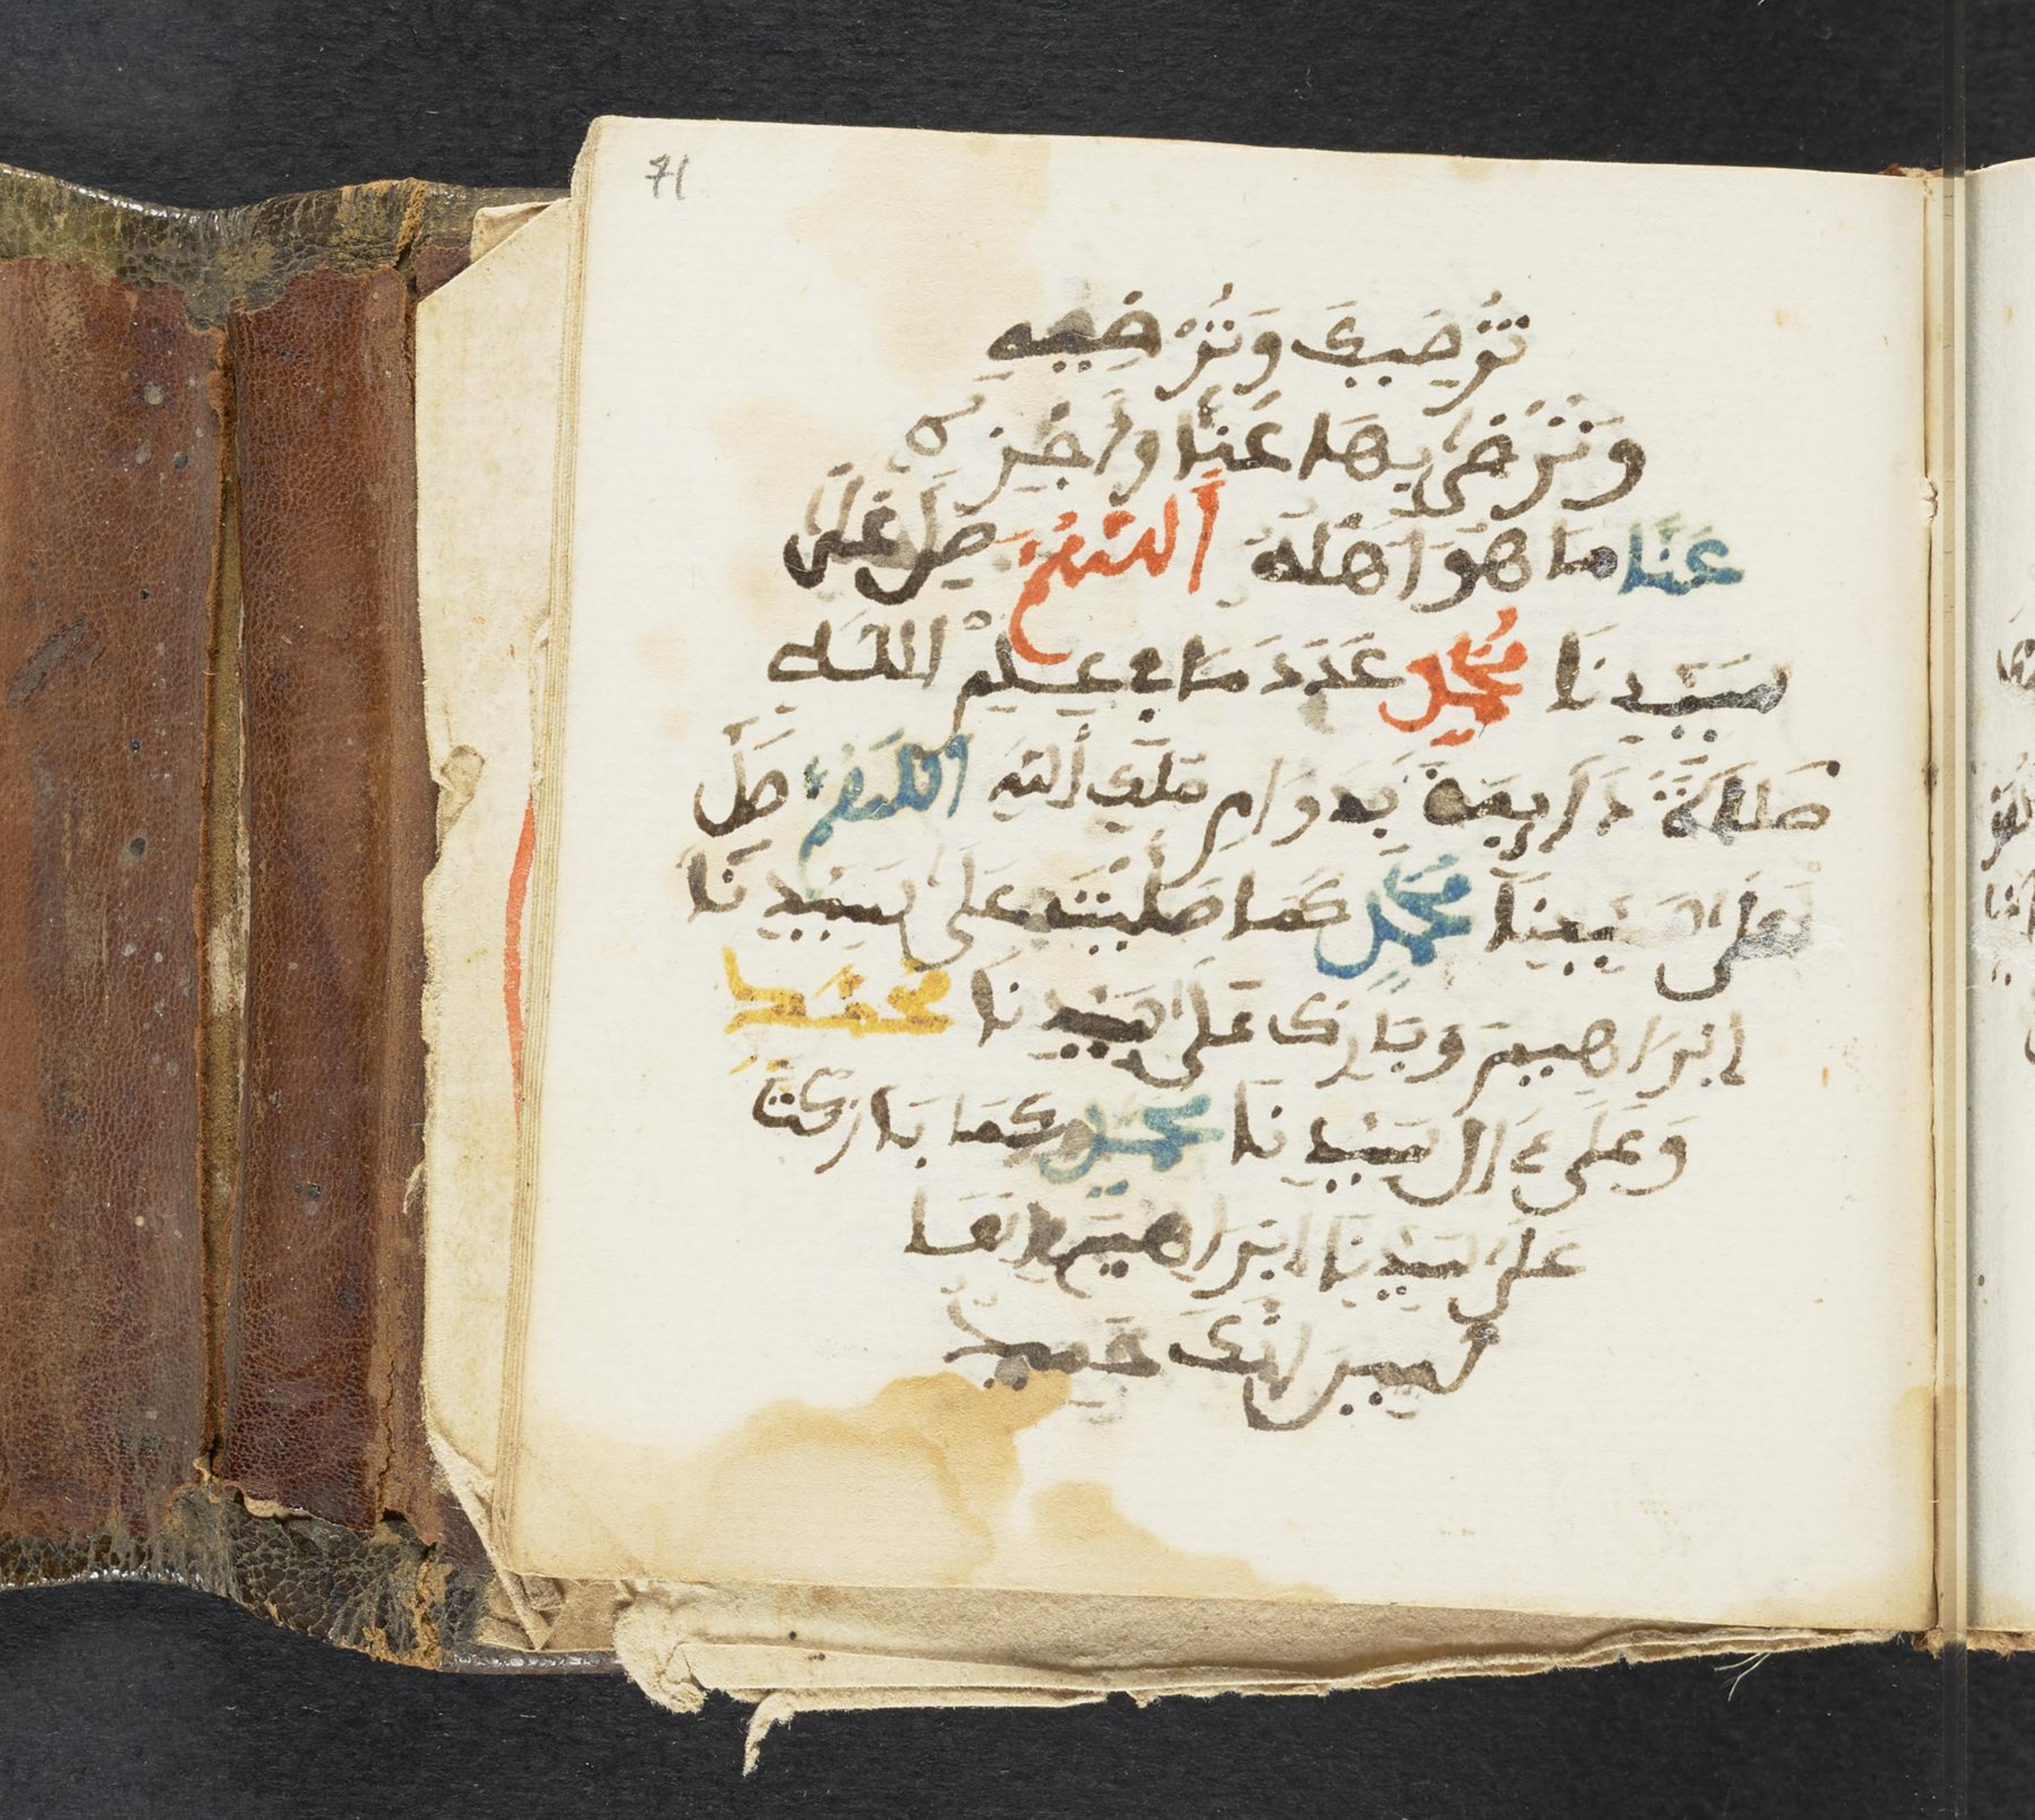 71
تُرْضِيكَ وَتُرْضِيهِ
وَتَرْضَى بِهَا عَنَّا وَاجْزِهِ
عَنَّا مَا هُوَ أَهْلُهُ اَللَّهُمَّ صَلِّ عَلَى
سَيِّدِنَا مُحَمَّدٍ عَدَدَ مَا فِي عِلْمِ اللَّهِ
صَلَاةً دَآيِمَةً بِدَوَامِ مُلْكِ اللَّهِ اللَّهُمَّ صَلِّ
عَلَى سَيِّدِنَا مُحَمَّدٍ كَمَا صَلَّيْتَ عَلَى سَيِّدِنَا
إِبْرَاهِيمَ وَبَارِكْ عَلَى سَيِّدِنَا مُحَمَّدٍ
وَعَلَى ءَالِ سَيِّدِنَا مُحَمَّدٍ كَمَا بَارَكْتَ
عَلَى سَيِّدِنَا إِبْرَاهِيمَ فِي الْعَا
لَمِينَ إِنَّكَ حَمِيدٌ